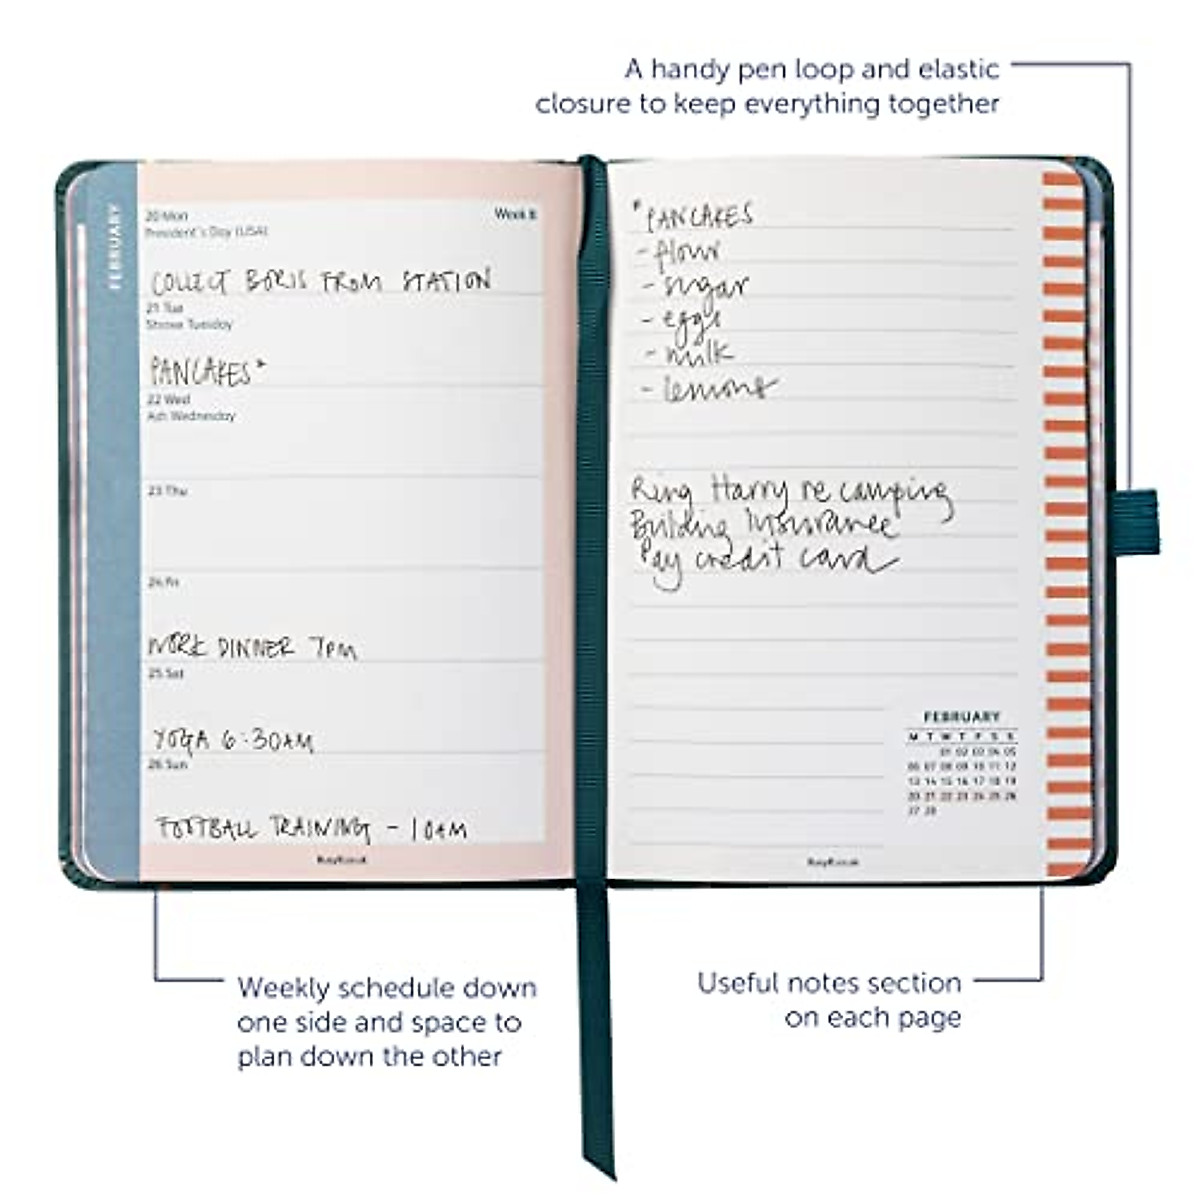 A handy pen loop and elastic
closure to keep everything together
FEBRUARY
20 Mon
Week 8
President's Day (USA)
COLLECT BORIS FROM STATION
21 Tue
Shrove Tuesday
PANCAKES*
22 Wed
Ash Wednesday
23 Thu
24 Fri
WORK DINNER 7PM
25 Sat
YOGA 6.30AM
26 Sun
FOOTBALL TRAINING - 10AM
BusyB.co.uk
*PANCAKES
- flour
- sugar
- eggs
- milk
- lemons
Ring Harry re camping
Building Insurance
Pay credit card
FEBRUARY
M T W T F S S
01 02 03 04 05
06 07 08 09 10 11 12
13 14 15 16 17 18 19
20 21 22 23 24 25 26
27 28
BusyB.co.uk
Weekly schedule down
one side and space to
plan down the other
Useful notes section
on each page